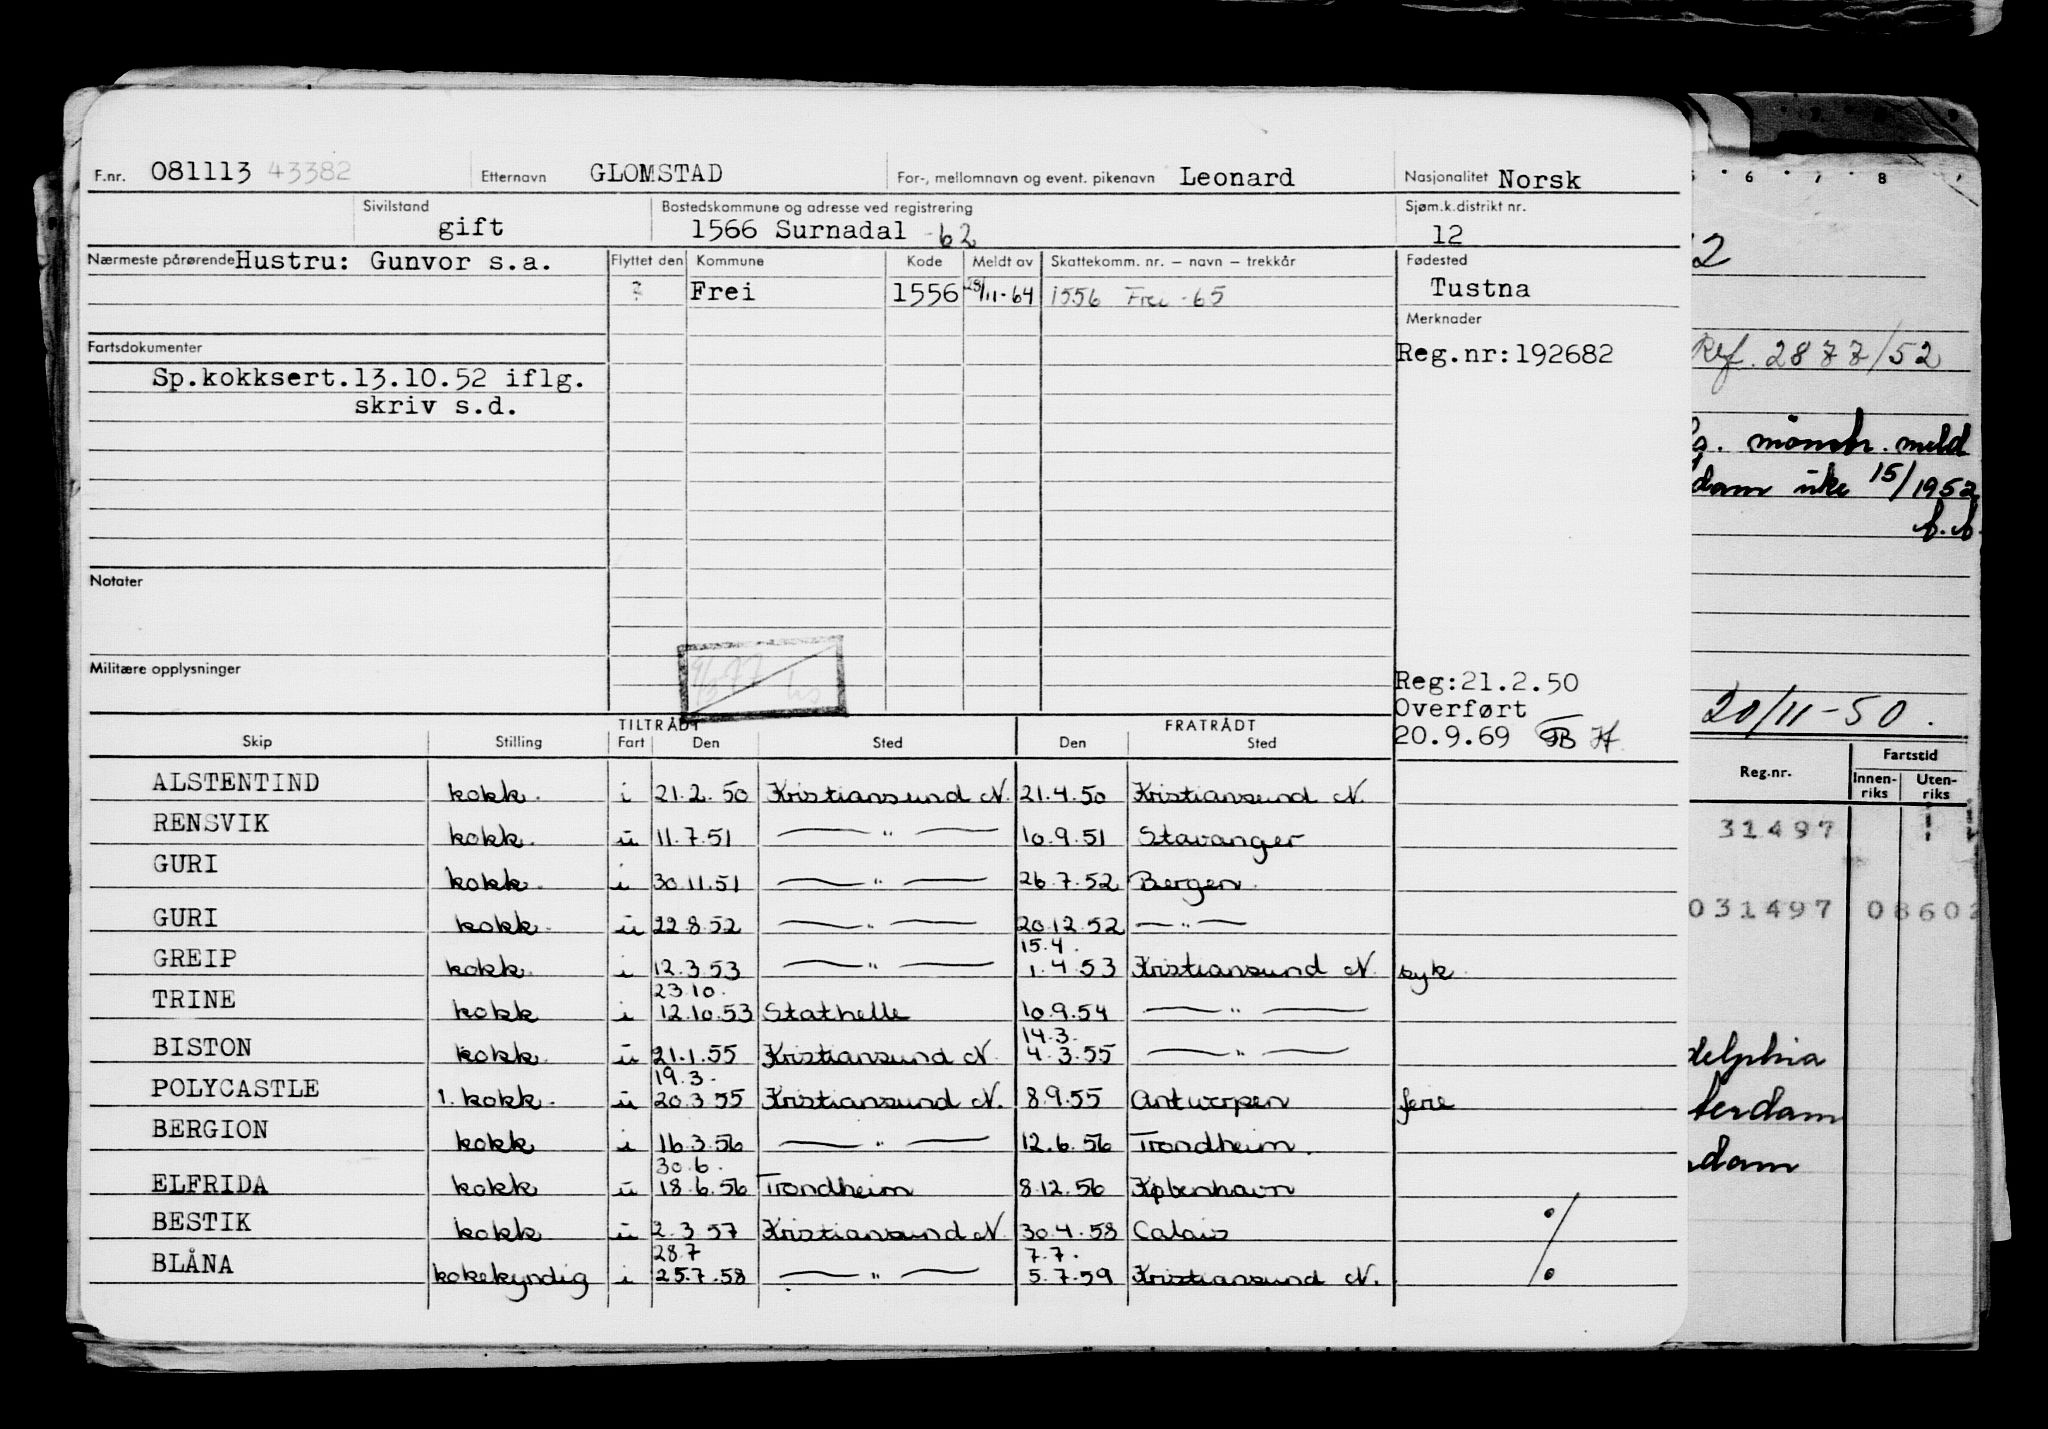 F.nr. 081113 43382 Etternavn GLOMSTAD For-, mellomnavn og event. pikenavn Leonard Nasjonalitet Norsk
Sivilstand gift Bostedskommune og adresse ved registrering 1566 Surnadal -62 Sjøm.k.distrikt nr. 12
Nærmeste pårørende Hustru: Gunvor s.a. Flyttet den Kommune Kode Meldt av Skattekomm. nr. – navn – trekkår Fødested
? Frei 1556 28/11-64 1556 Frei -65 Tustna
Merknader
Fartsdokumenter Reg.nr:192682
Sp.kokksert.13.10.52 iflg.
skriv s.d.
Notater
Militære opplysninger
Reg:21.2.50
Overført
20.9.69
TILTRÅDT FRATRÅDT
Skip Stilling Fart Den Sted Den Sted
ALSTENTIND kokk. i 21.2.50 Kristiansund N. 21.4.50 Kristiansund N.
RENSVIK kokk. u 11.7.51 — " — 10.9.51 Stavanger
GURI kokk. i 30.11.51 — " — 26.7.52 Bergen.
GURI kokk. u 22.8.52 — " — 20.12.52 — " —
15.4.
GREIP kokk. i 12.3.53 — " — 1.4.53 Kristiansund N. syk.
23.10.
TRINE kokk i 12.10.53 Stathelle 10.9.54 — " —
14.3.
BISTON kokk. u 21.1.55 Kristiansund N. 4.3.55 — " —
19.3.
POLYCASTLE 1. kokk. u 20.3.55 Kristiansund N. 8.9.55 Antwerpen ferie
BERGION kokk i 16.3.56 — " — 12.6.56 Trondheim.
30.6.
ELFRIDA kokk u 18.6.56 Trondheim 8.12.56 København
BESTIK kokk u 2.3.57 Kristiansund N. 30.4.58 Calais
28.7 7.7.
BLÅNA kokekyndig i 25.7.58 — " — 5.7.59 Kristiansund N.
6 7 8
2
Ref. 2877/52
mönstr. meld
dam uke 15/1952
b.b.
20/11-50.
Fartstid
Reg.nr. Innen-riks Uten-riks
31497
031497 08602
delphia
terdam
dam